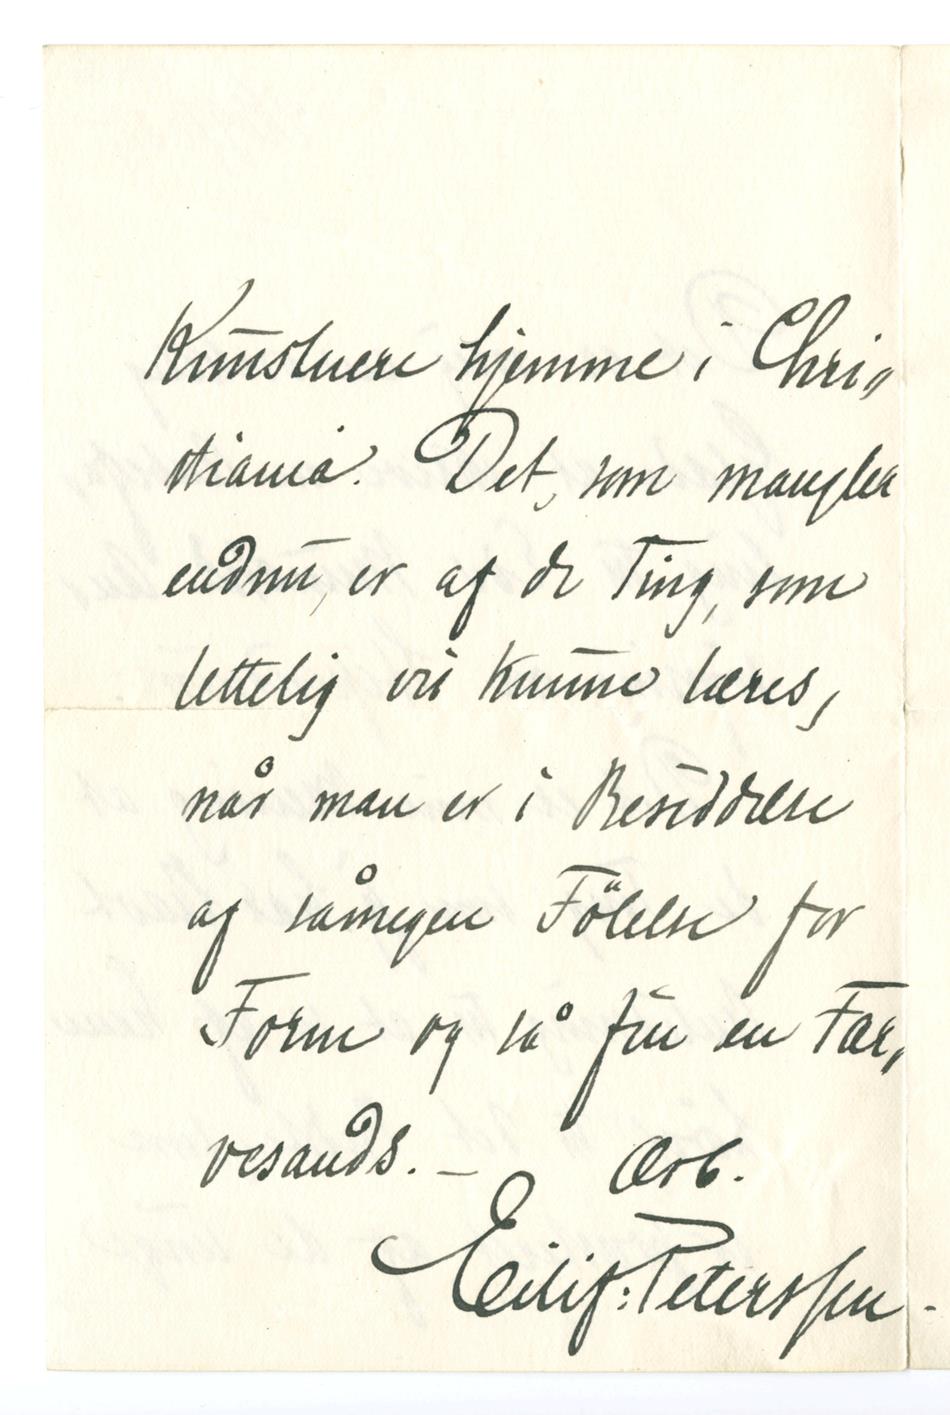 Kunstnere hjemme i Chri„
stiania. Det, som mangler
endnu, er af de Ting, som
lettelig vil kunne læres,
når man er i Besiddelse
af såmegen Fölelse for
Form og så fin en Far„
vesands. — Ærb.
Eilif: Peterssen.